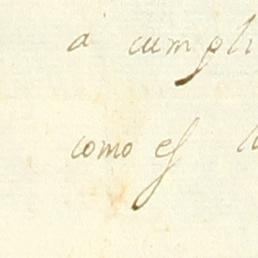 a cumpli
como es